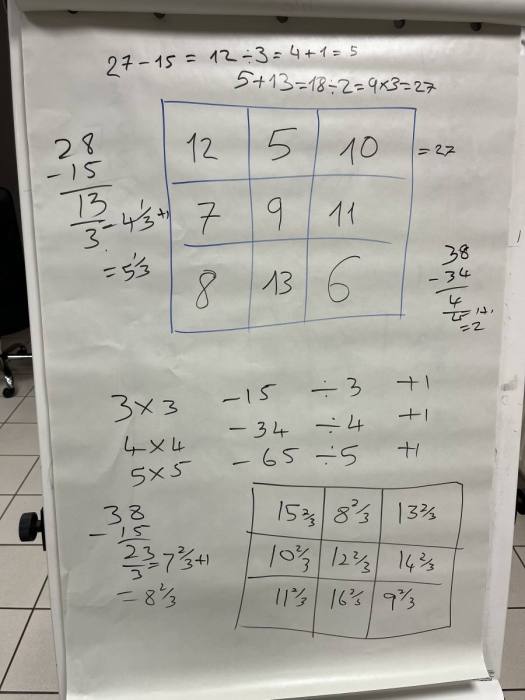 27-15 = 12÷3=4+1=5
5+13=18÷2=9×3=27
28
-15
13
3 = 4 1/3 +1
= 5 1/3
12 5 10 = 27
7 9 11
8 13 6
38
-34
4
4 = 1+1
= 2
3×3 -15 ÷3 +1
4×4 -34 ÷4 +1
5×5 -65 ÷5 +1
38
-15
23
3 = 7 2/3 +1
= 8 2/3
15 2/3 8 2/3 13 2/3
10 2/3 12 2/3 14 2/3
11 2/3 16 2/3 9 2/3